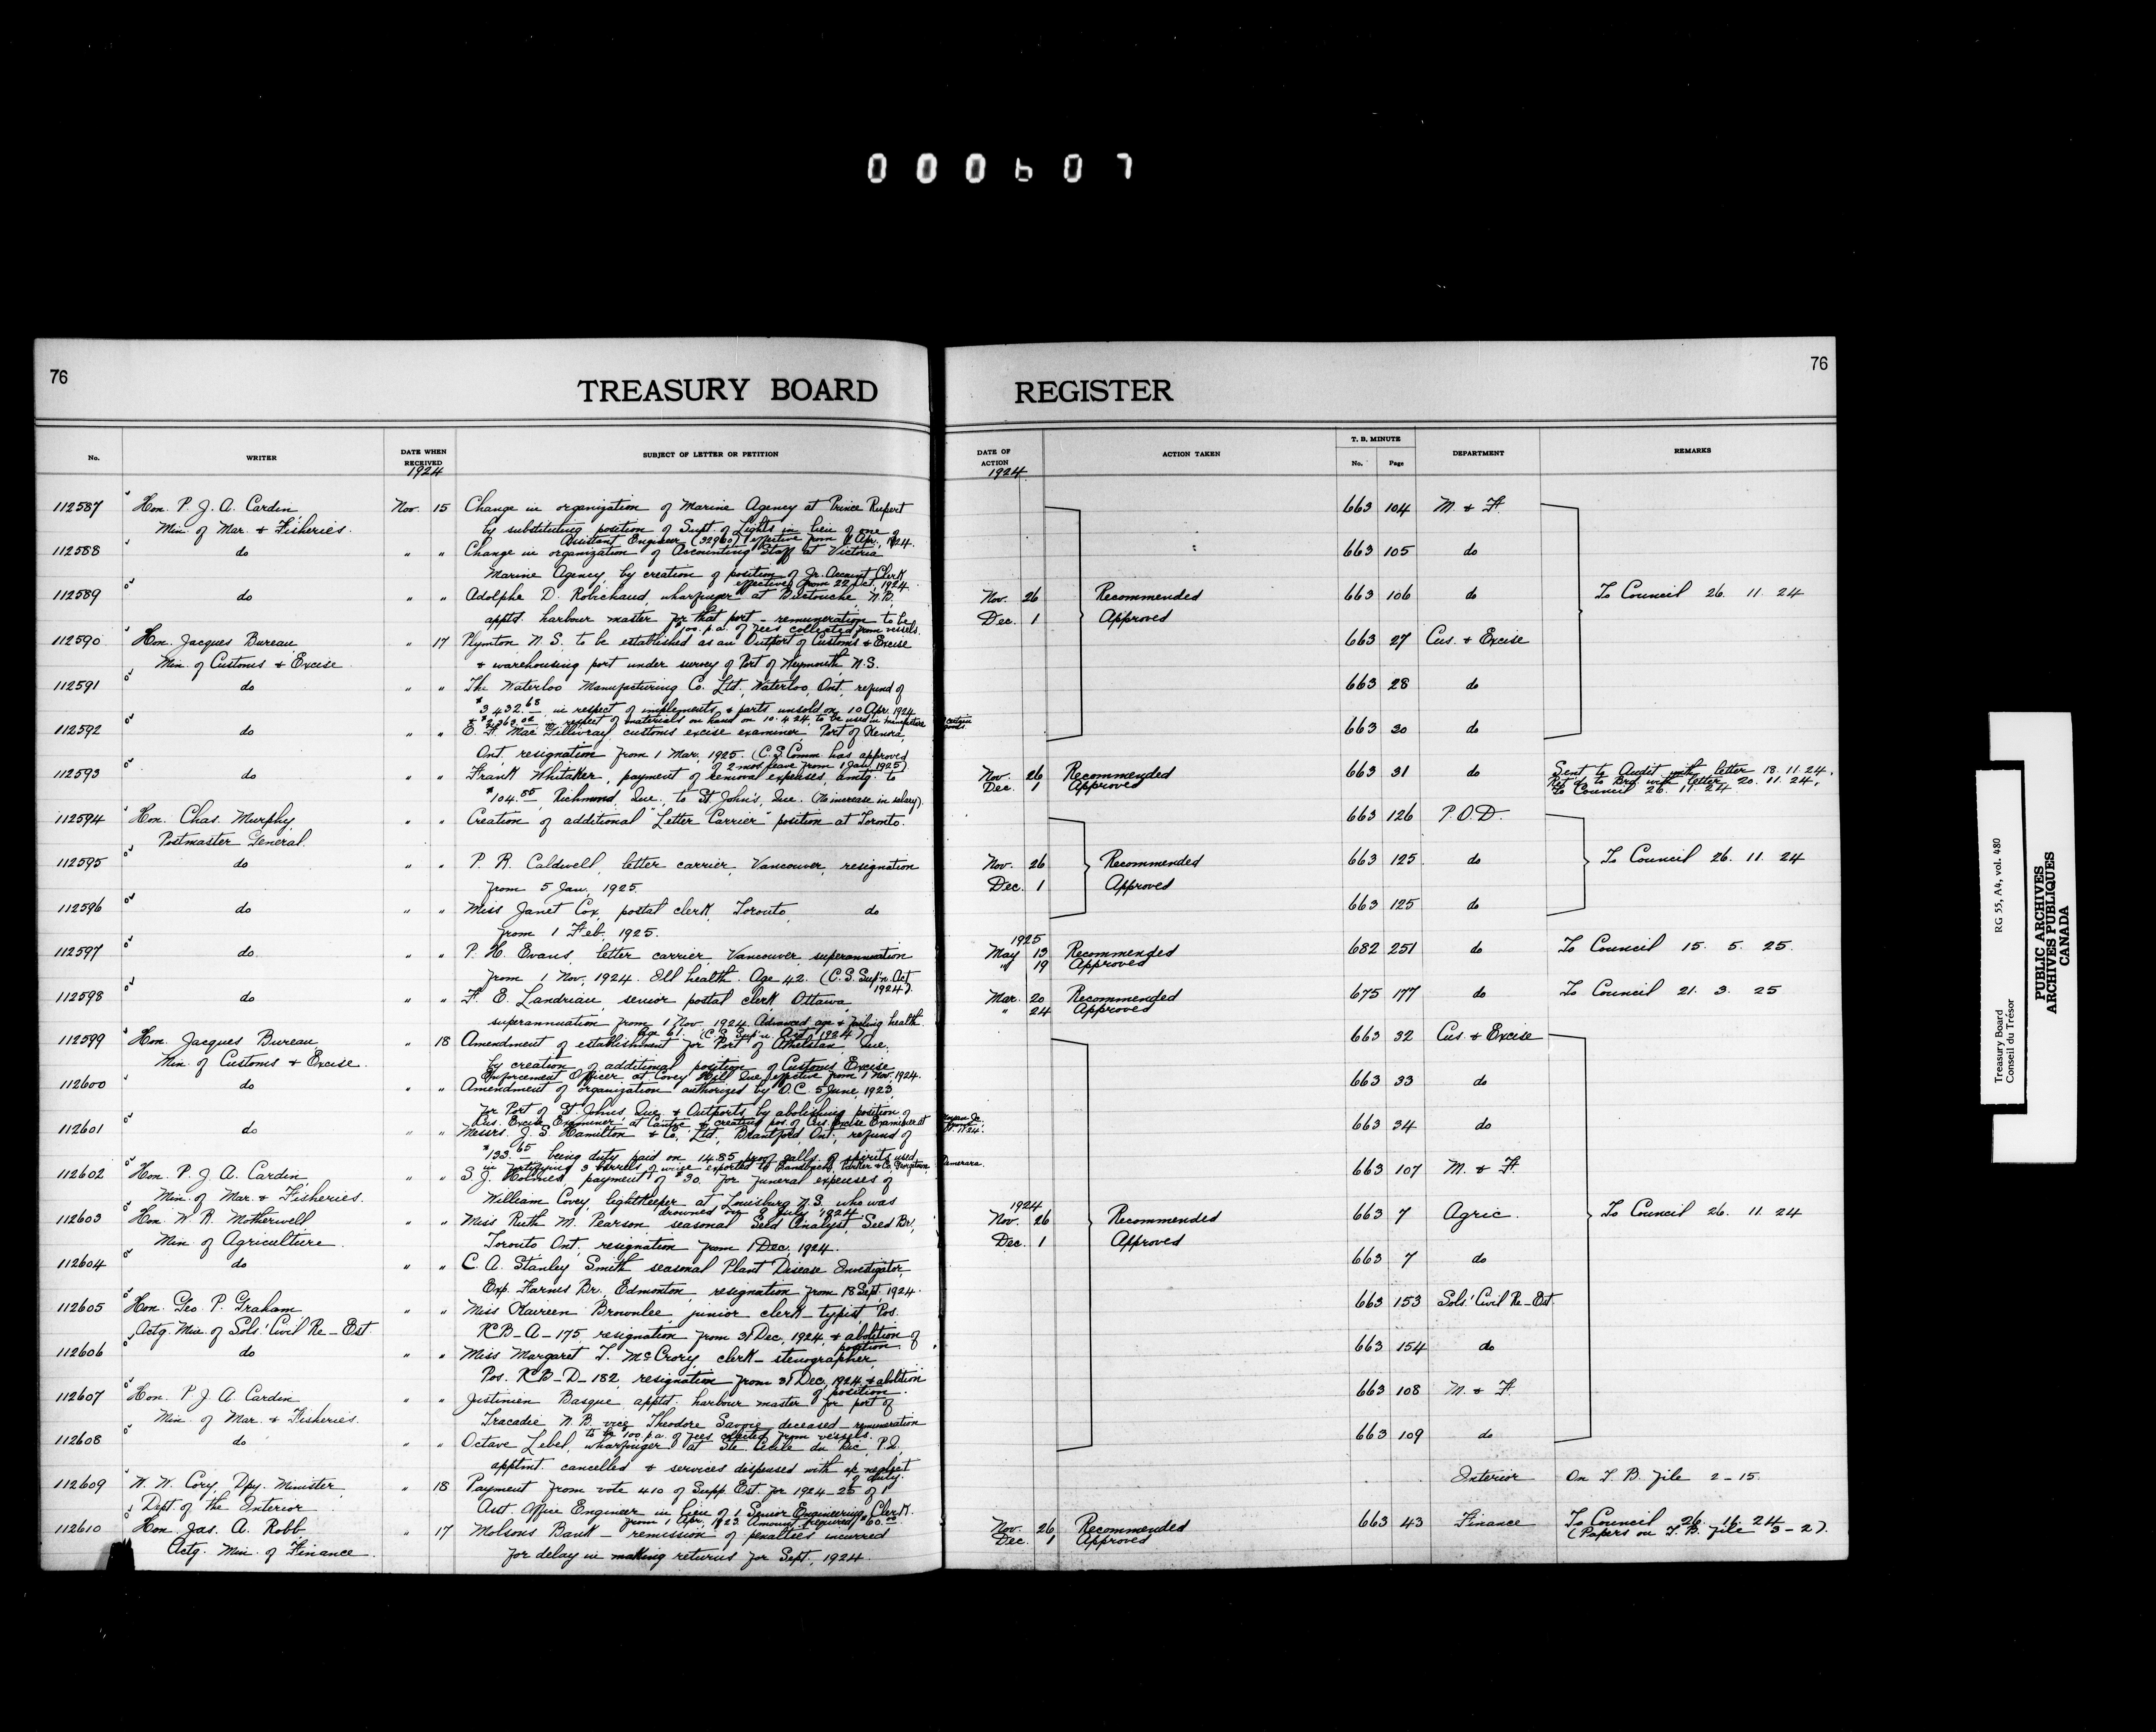 000607
76
TREASURY BOARD
No.
WRITER
DATE WHEN RECEIVED
1924
SUBJECT OF LETTER OR PETITION
112587 Hon. P. J. A. Cardin, Nov. 15 Change in organization of Marine Agency at Prince Rupert
Min. of Mar. & Fisheries. by substituting position of Supt. of Lights in lieu of one of
Assistant Engineer (32960) effective from 1 Apr., 1924.
112588 do " " Change in organization of Accounting Staff at Victoria
Marine Agency, by creation of position of Jr. Account Clerk
effective from 22 Oct. 1924.
112589 do " " Adolphe D. Robichaud, wharfinger at Buctouche, N.B.
apptd. harbour master for that port - remuneration to be
100. p.a. of fees collected from vessels.
112590 Hon. Jacques Bureau, " 17 Plymton N.S. to be established as an Outport of Customs & Excise
Min. of Customs & Excise & warehousing port under survey of Port of Weymouth N.S.
112591 do " " The Waterloo Manufacturing Co. Ltd., Waterloo, Ont., refund of
$3432.68 in respect of implements & parts unsold on 10 Apr. 1924
& $2363.02 in respect of materials on hand on 10.4.24, to be used in manufacture
112592 do " " E. F. MacGillivray, customs excise examiner, Port of Kenora,
Ont. resignation from 1 Mar. 1925. (C.S. Comm. has approved
of 2 mos. leave from 1 Jan. 1925)
112593 do " " Frank Whitaker, payment of removal expenses amtg. to
$104.85, Richmond, Que., to St. John's, Que. (No increase in salary).
112594 Hon. Chas. Murphy " " Creation of additional "Letter Carrier" position at Toronto.
Postmaster General.
112595 do " " P. R. Caldwell, letter carrier, Vancouver, resignation
from 5 Jan. 1925.
112596 do " " Miss Janet Cox, postal clerk, Toronto, do
from 1 Feb. 1925.
112597 do " " P. H. Evans, letter carrier, Vancouver, superannuation
from 1 Nov. 1924. Ill health. Age 42. (C.S. Sup'n. Act
1924).
112598 do " " F. E. Landriau, senior postal clerk, Ottawa
superannuation from 1 Nov. 1924. Advanced age & failing health.
Age 61. (C.S. Sup'n. Act, 1924)
112599 Hon. Jacques Bureau, " 18 Amendment of establishment for Port of Athelstan, Que.
Min. of Customs & Excise. by creation of additional position of Customs Excise
Enforcement Officer at Covey Hill Que. effective from 1 Nov. 1924.
112600 do " " Amendment of organization authorized by O.C. 5 June, 1923
for Port of St. Johns, Que. & Outports, by abolishing position of
Cus. Excise Examiner at Cantic & creating pos. of Cus. Excise Examiner at
112601 do " " Messrs. J. S. Hamilton & Co., Ltd., Brantford, Ont., refund of
$133.65 being duty paid on 14.85 proof galls. of spirits used
in fortifying 3 barrels of wine exported to Sandbach, Parker & Co. Georgetown,
112602 Hon. P. J. A. Cardin, " " S. J. Holmes, payment of $30. for funeral expenses of
Min. of Mar. & Fisheries. William Covey, lightkeeper at Louisburg, N.S. who was
drowned on 8 July 1924.
112603 Hon. W. R. Motherwell " " Miss Ruth M. Pearson seasonal Seed Analyst, Seed Br.,
Min. of Agriculture. Toronto, Ont., resignation from 1 Dec. 1924.
112604 do " " C. A. Stanley Smith seasonal Plant Disease Investigator,
Exp. Farms Br., Edmonton, resignation from 18 Sept. 1924.
112605 Hon. Geo. P. Graham " " Miss Maureen Brownlee, junior clerk-typist, Pos.
Actg. Min. of Sols.' Civil Re-Est. KB-A-175, resignation from 31 Dec. 1924, & abolition of
position.
112606 do " " Miss Margaret T. McCrory, clerk-stenographer,
Pos. KB-D-182, resignation from 31 Dec. 1924 & abolition
of position.
112607 Hon. P. J. A. Cardin " " Justinien Basque, apptd. harbour master for port of
Min. of Mar. & Fisheries. Tracadie N.B. vice Theodore Savoie deceased - remuneration
to be 100. p.a. of fees collected from vessels.
112608 do " " Octave Lebel, wharfinger at Ste. Cecile du Bic, P.Q.
apptmt. cancelled & services dispensed with a/c neglect
of duty.
112609 W. W. Cory, Dpy. Minister, " 18 Payment from vote 410 of Supp. Est. for 1924-25 of 1
Dept. of the Interior Asst. Office Engineer in lieu of 1 Senior Engineering Clerk.
from 1 Apr. 1923. Amount required $60.00
112610 Hon. Jas. A. Robb " 17 Molsons Bank - remission of penalties incurred
Actg. Min. of Finance. for delay in making returns for Sept. 1924.
REGISTER
76
DATE OF ACTION
1924
ACTION TAKEN
T. B. MINUTE
No. Page
DEPARTMENT
REMARKS
663 104 M. & F.
663 105 do
Nov. 26 Recommended 663 106 do To Council 26. 11. 24
Dec. 1 Approved
663 27 Cus. & Excise
663 28 do
663 30 do
Nov. 26 Recommended 663 31 do Sent to Audit with letter 18.11.24.
Dec. 1 Approved Ret'd. to Brd. with letter 20.11.24.
To Council 26.11.24
663 126 P.O.D.
Nov. 26 Recommended 663 125 do To Council 26. 11. 24
Dec. 1 Approved
663 125 do
1925
May 13 Recommended 682 251 do To Council 15. 5. 25.
" 19 Approved
Mar. 20 Recommended 675 177 do To Council 21. 3. 25
" 24 Approved
663 32 Cus. & Excise
663 33 do
663 34 do
Demerara.
663 107 M. & F.
1924
Nov. 26 Recommended 663 7 Agric. To Council 26. 11. 24
Dec. 1 Approved
663 7 do
663 153 Sols.' Civil Re-Est.
663 154 do
663 108 M. & F.
663 109 do
Interior On T. B. file 2-15.
Nov. 26 Recommended 663 43 Finance To Council 26. 16. 24
Dec. 1 Approved (Papers on T. B. file 3-2).
Treasury Board RG 55, A4, vol. 480
Conseil du Trésor
PUBLIC ARCHIVES
ARCHIVES PUBLIQUES
CANADA